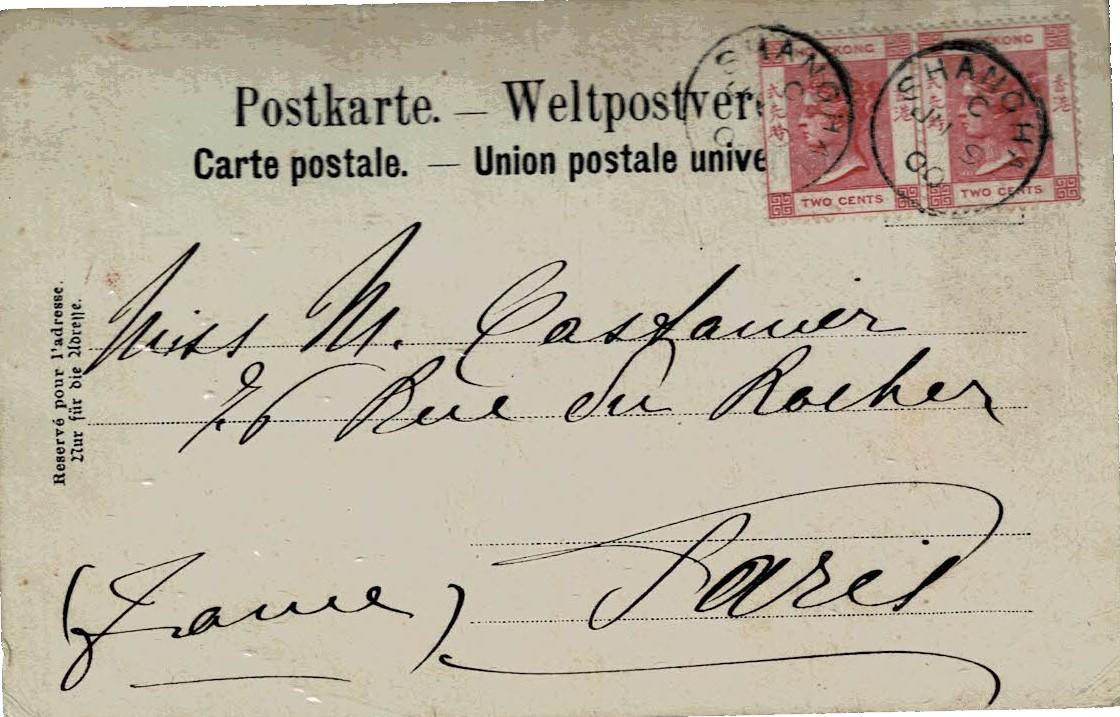 Postkarte. — Weltpostver
Carte postale. — Union postale unive
HONGKONG
香港
TWO CENTS
HONGKONG
香港
TWO CENTS
SHANGHA
C
SHANGHA
C
JN
00
Reservé pour l'adresse.
Nur für die Adresse.
Miss M. Castanier
76 Rue du Rocher
Paris
(France)